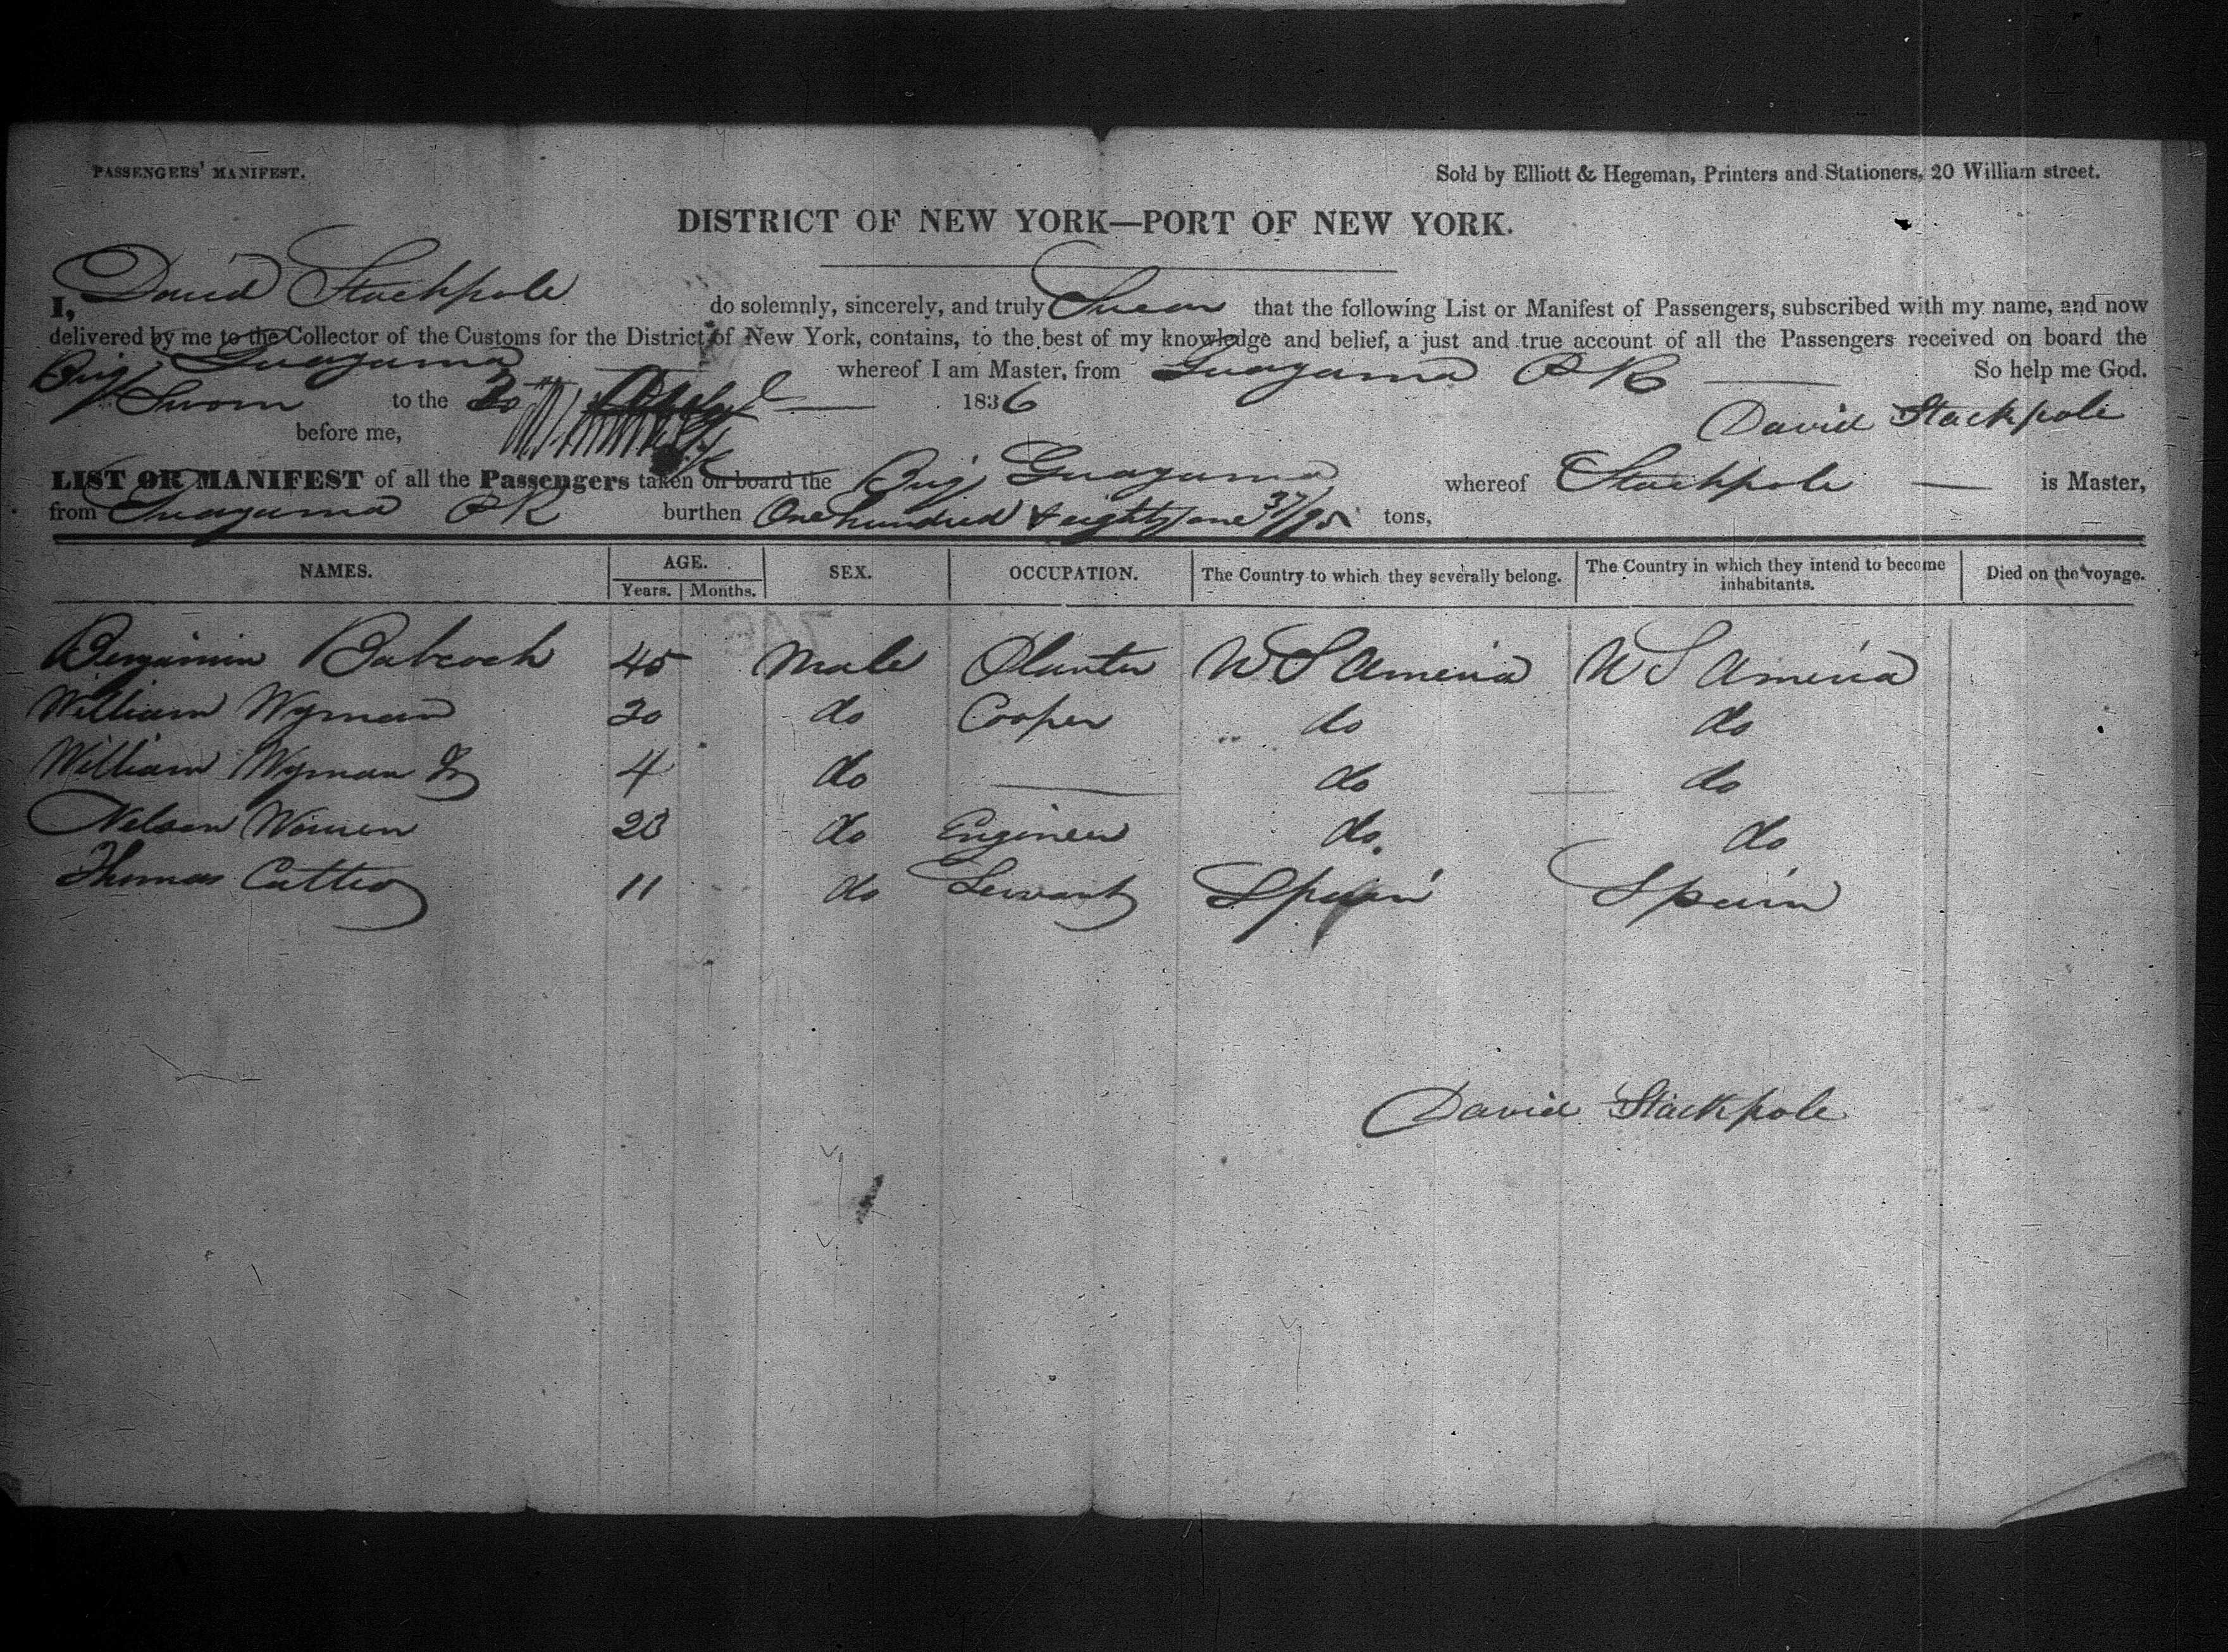 PASSENGERS' MANIFEST.
Sold by Elliott & Hegeman, Printers and Stationers, 20 William street.
DISTRICT OF NEW YORK—PORT OF NEW YORK.
I, David Stackpole do solemnly, sincerely, and truly Swear that the following List or Manifest of Passengers, subscribed with my name, and now
delivered by me to the Collector of the Customs for the District of New York, contains, to the best of my knowledge and belief, a just and true account of all the Passengers received on board the
Brig Guayama whereof I am Master, from Guayama P R So help me God.
Sworn to the 20th 1836 David Stackpole
before me,
LIST OR MANIFEST of all the Passengers taken on board the Brig Guayama whereof Stackpole is Master,
from Guayama P R burthen One hundred & eighty one 37/95 tons,
NAMES. AGE. SEX. OCCUPATION. The Country to which they severally belong. The Country in which they intend to become inhabitants. Died on the voyage.
Years. Months.
Benjamin Babcock 45 Male Planter U S America U S America
William Wyman 30 do Cooper do do
William Wyman Jr 4 do do do
Nelson 23 do Engineer do. do
Thomas 11 do Servant Spain Spain
David Stackpole